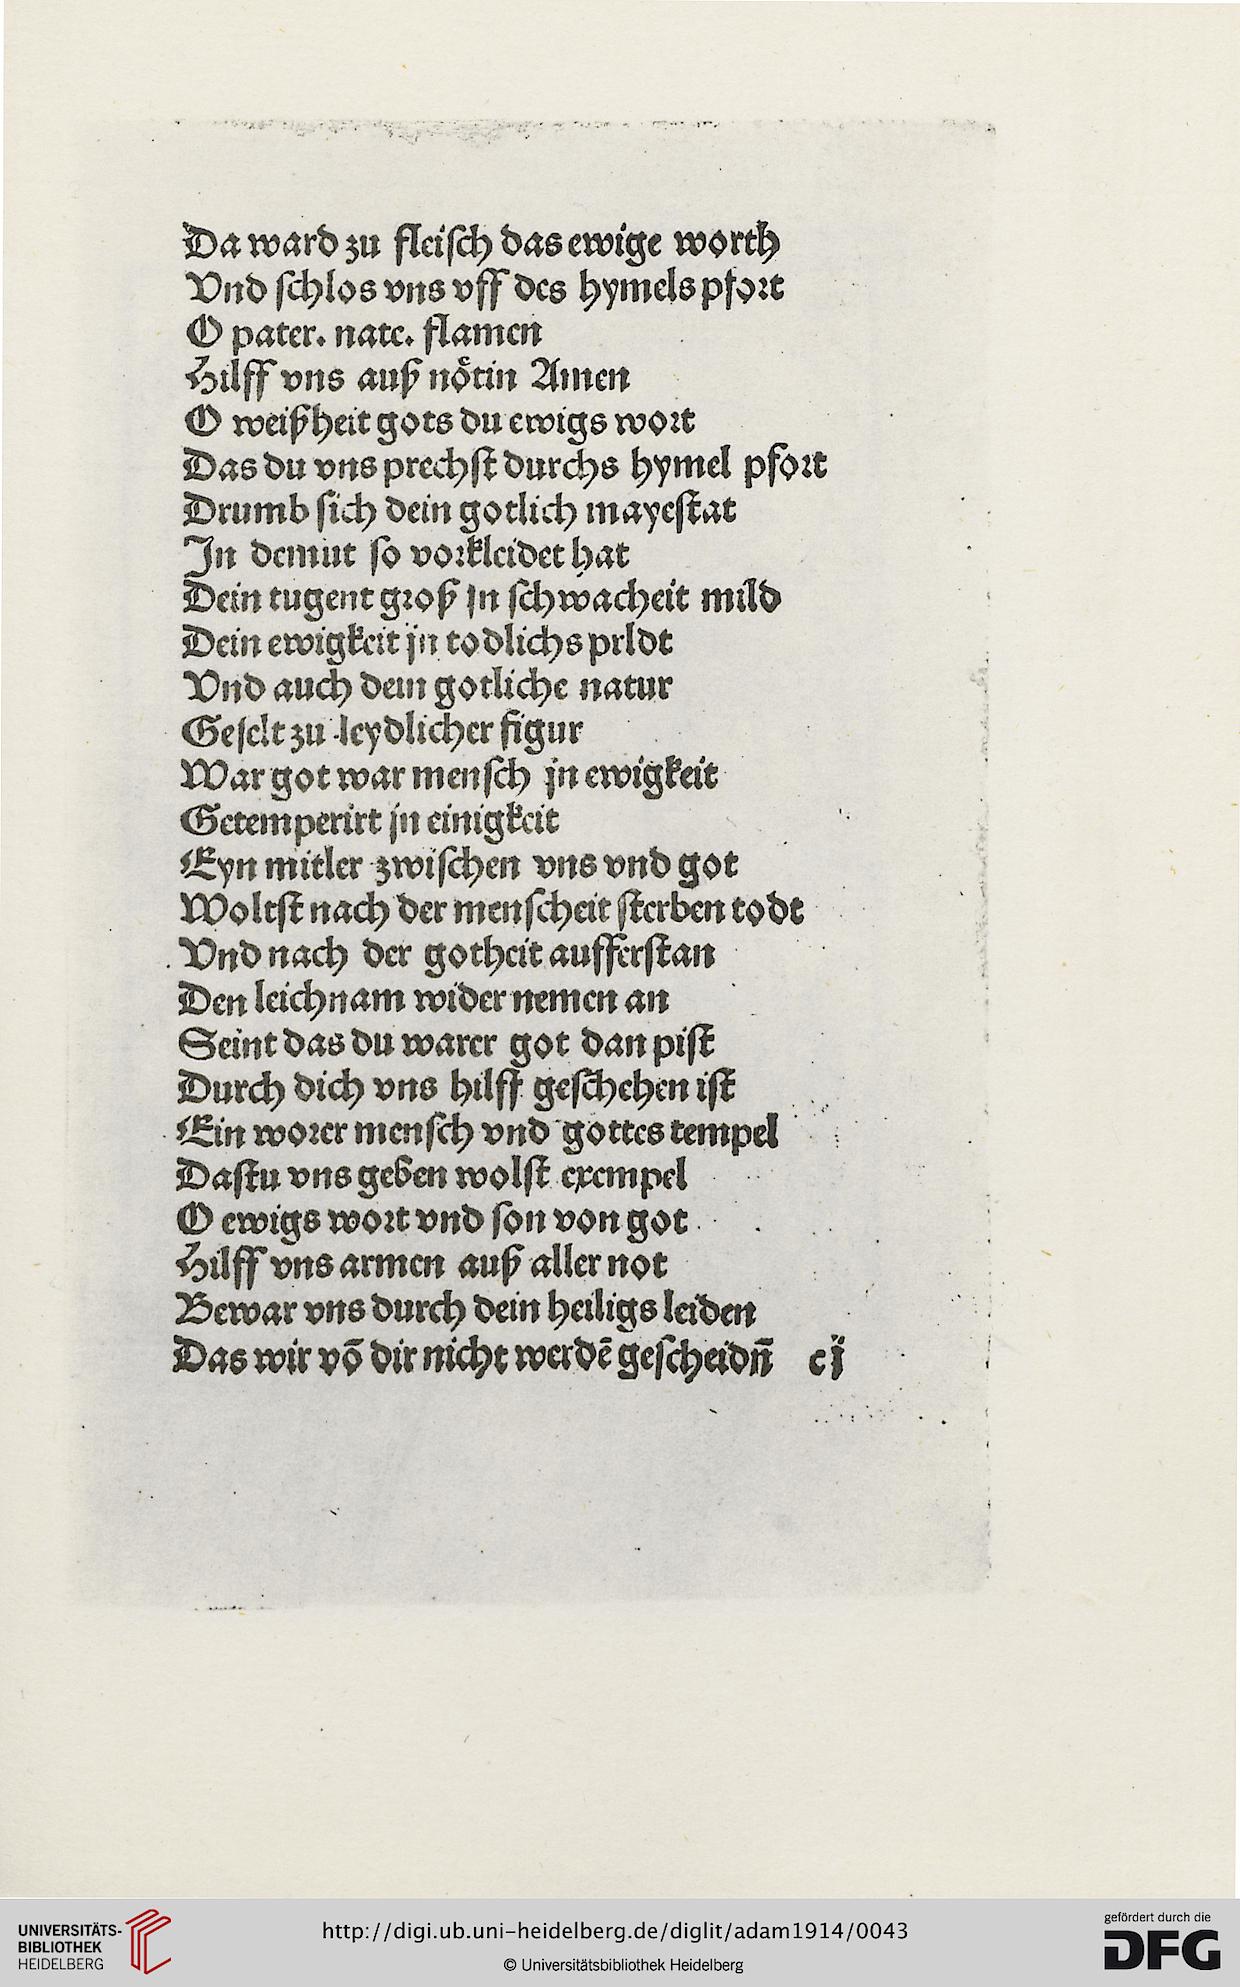 Da ward zu fleisch das ewige worth
Vnd schlos vns vff des hymels pfort
O pater. nate. flamen
Hilff vns auß nötin Amen
O weißheit gots du ewigs wort
Das du vns prechst durchs hymel pfort
Drumb sich dein gotlich mayestat
In demut so vorkleidet hat
Dein tugent groß jn schwacheit mild
Dein ewigkeit jn todlichs pildt
Vnd auch dein gotliche natur
Geselt zu leydlicher figur
War got war mensch jn ewigkeit
Getemperirt jn einigkeit
Eyn mitler zwischen vns vnd got
Woltst nach der menscheit sterben todt
Vnd nach der gotheit aufferstan
Den leichnam wider nemen an
Seint das du warer got dan pist
Durch dich vns hilff geschehen ist
Ein worer mensch vnd gottes tempel
Dastu vns geben wolst exempel
O ewigs wort vnd son von got
Hilff vns armen auß aller not
Bewar vns durch dein heiligs leiden
Das wir vō dir nicht werdē gescheidn̄ cij
UNIVERSITÄTS-
BIBLIOTHEK
HEIDELBERG
http://digi.ub.uni-heidelberg.de/diglit/adam1914/0043
© Universitätsbibliothek Heidelberg
gefördert durch die
DFG